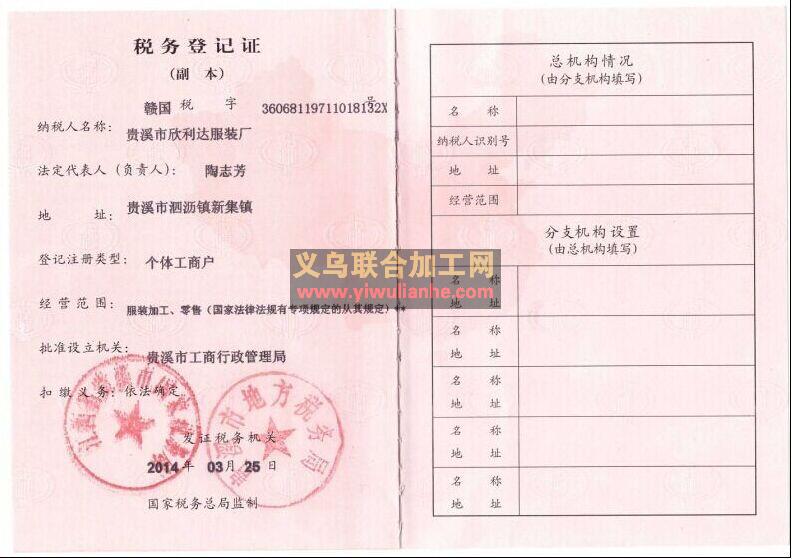 税务登记证
(副 本)
赣国 税 字 36068119711018132X 号
纳税人名称: 贵溪市欣利达服装厂
法定代表人(负责人): 陶志芳
地 址: 贵溪市泗沥镇新集镇
登记注册类型: 个体工商户
经营范围: 服装加工、零售(国家法律法规有专项规定的从其规定)**
批准设立机关: 贵溪市工商行政管理局
扣缴义务: 依法确定
发证税务机关
2014 年 03 月 25 日
国家税务总局监制
江西省贵溪市国家税务局
贵溪市地方税务局
总机构情况
(由分支机构填写)
名 称
纳税人识别号
地 址
经营范围
分支机构设置
(由总机构填写)
名 称
地 址
名 称
地 址
名 称
地 址
名 称
地 址
名 称
地 址
义乌联合加工网
www.yiwulianhe.com